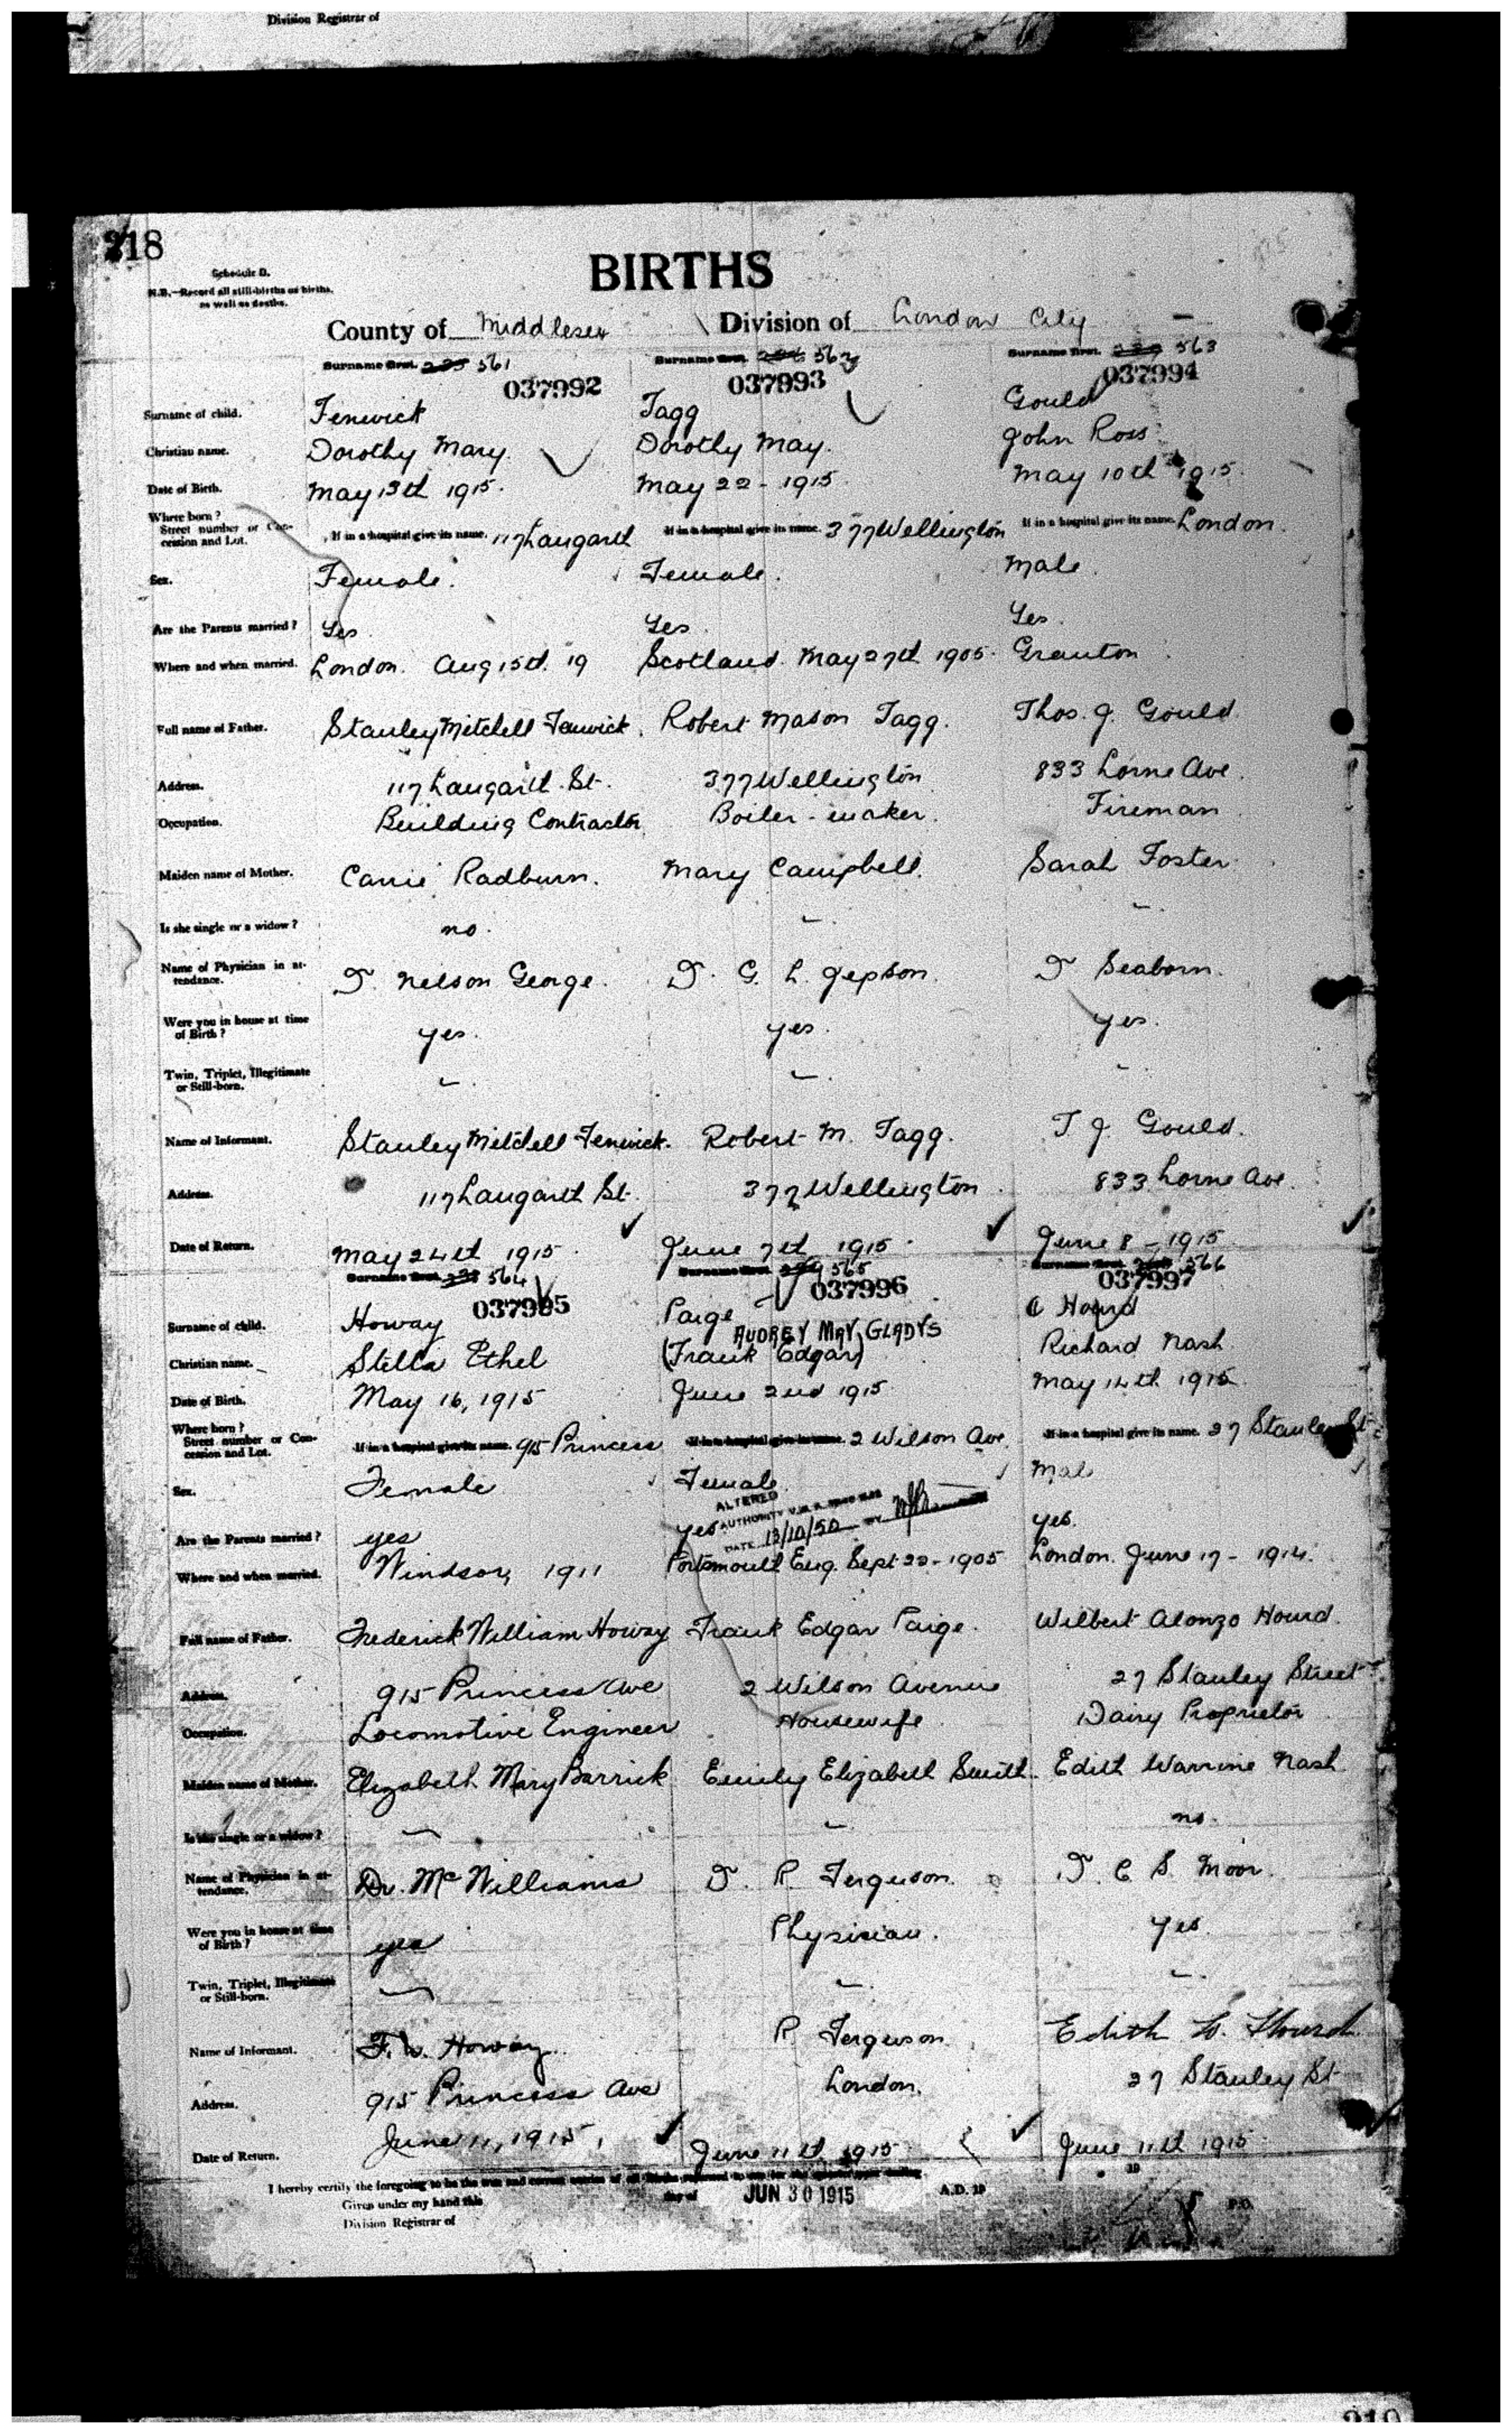 Division Registrar of
218
Schedule D.
N.B.—Record all still-births as births, as well as deaths.
BIRTHS
County of Middlesex Division of London City
Surname first. 561 Surname first. 562 Surname first. 563
037992 037993 037994
Surname of child. Fenwick Tagg Gould
Christian name. Dorothy Mary. Dorothy May. John Ross
Date of Birth. May 13th 1915. May 22 - 1915 May 10th 1915.
Where born? Street number or Concession and Lot. If in a hospital give its name. 117 Langarth If in a hospital give its name. 377 Wellington If in a hospital give its name. London.
Sex. Female. Female. Male.
Are the Parents married? Yes Yes. Yes.
Where and when married. London. Aug 15th. 19 Scotland. May 27th 1905. Granton
Full name of Father. Stanley Mitchell Fenwick. Robert Mason Tagg. Thos. J. Gould
Address. 117 Langarth St. 377 Wellington 833 Lorne Ave.
Occupation. Building Contractor Boiler-maker. Fireman
Maiden name of Mother. Carrie Radburn. Mary Campbell. Sarah Foster
Is she single or a widow? no. - -
Name of Physician in attendance. D. Nelson George. D. G. L. Jepson. D Seaborn.
Were you in house at time of Birth? yes. yes. yes.
Twin, Triplet, Illegitimate or Still-born. - - -
Name of Informant. Stanley Mitchell Fenwick. Robert M. Tagg. T J. Gould.
Address. 117 Langarth St. 377 Wellington 833 Lorne Ave.
Date of Return. May 24th 1915. June 7th 1915. June 8 - 1915
Surname first. 564 Surname first. 565 Surname first. 566
037995 037996 037997
Surname of child. Howay Paige Hourd
AUDREY MAY GLADYS
Christian name. Stella Ethel (Frank Edgar) Richard Nash
Date of Birth. May 16, 1915 June 2nd 1915. May 14th 1915
Where born? Street number or Concession and Lot. If in a hospital give its name. 915 Princess If in a hospital give its name. 2 Wilson Ave. If in a hospital give its name. 27 Stanley St.
Sex. Female Female Male
ALTERED
AUTHORITY
Are the Parents married? yes yes yes.
DATE 13/10/50 BY
Where and when married. Windsor, 1911 Portsmouth Eng. Sept 22 - 1905 London. June 17 - 1914.
Full name of Father. Frederick William Howay Frank Edgar Paige. Wilbert Alonzo Hourd.
Address. 915 Princess Ave 2 Wilson Avenue 27 Stanley Street
Occupation. Locomotive Engineer Housewife Dairy Proprietor
Maiden name of Mother. Elizabeth Mary Barrick Emily Elizabeth Smith. Edith Warrine Nash
Is she single or a widow? - - no.
Name of Physician in attendance. Dr. McWilliams D. R. Ferguson. D. C S. Moor.
Were you in house at time of Birth? yes Physician. yes.
Twin, Triplet, Illegitimate or Still-born. - - -
Name of Informant. F. W. Howay. R. Ferguson Edith W. Hourd
Address. 915 Princess Ave London. 27 Stanley St
Date of Return. June 11, 1915, June 11th 1915 June 11th 1915
I hereby certify the foregoing to be the true and correct entries of all Births returned to me for the quarter year ending 19
Given under my hand this day of JUN 30 1915 A.D. 19
Division Registrar of P.O.
219